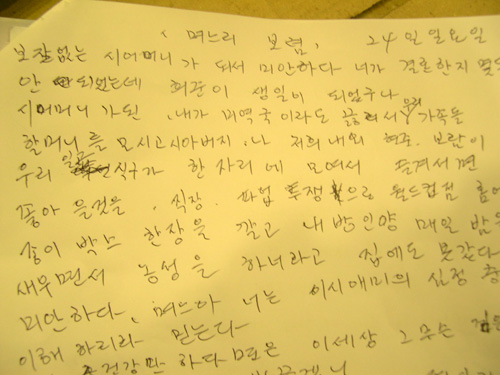 며느리 보렴, 24일 일요일
보잘없는 시어머니가 되서 미안하다 너가 결혼한지 몇
안 되었는데 희준이 생일이 되었구나
시어머니가 된, 내가 미역국이라도 끓여서 우리 가족들
할머니를 모시고 시아버지, 나 저희 내외 현주, 보람이
우리 일곱 식구가 한 자리에 모여서 즐겨서면
좋아 을것을, 식장. 파업 투쟁으로 월드컵점 홈
종이 박스 한장을 깔고 내 방인양 매일 밤을
새우면서 농성을 하너라고 집에도 못갔다
미안하다, 며느아 너는 이시애미의 심정 충
이해 하리라 믿는다
건강만 하다면 이세상 그 무슨